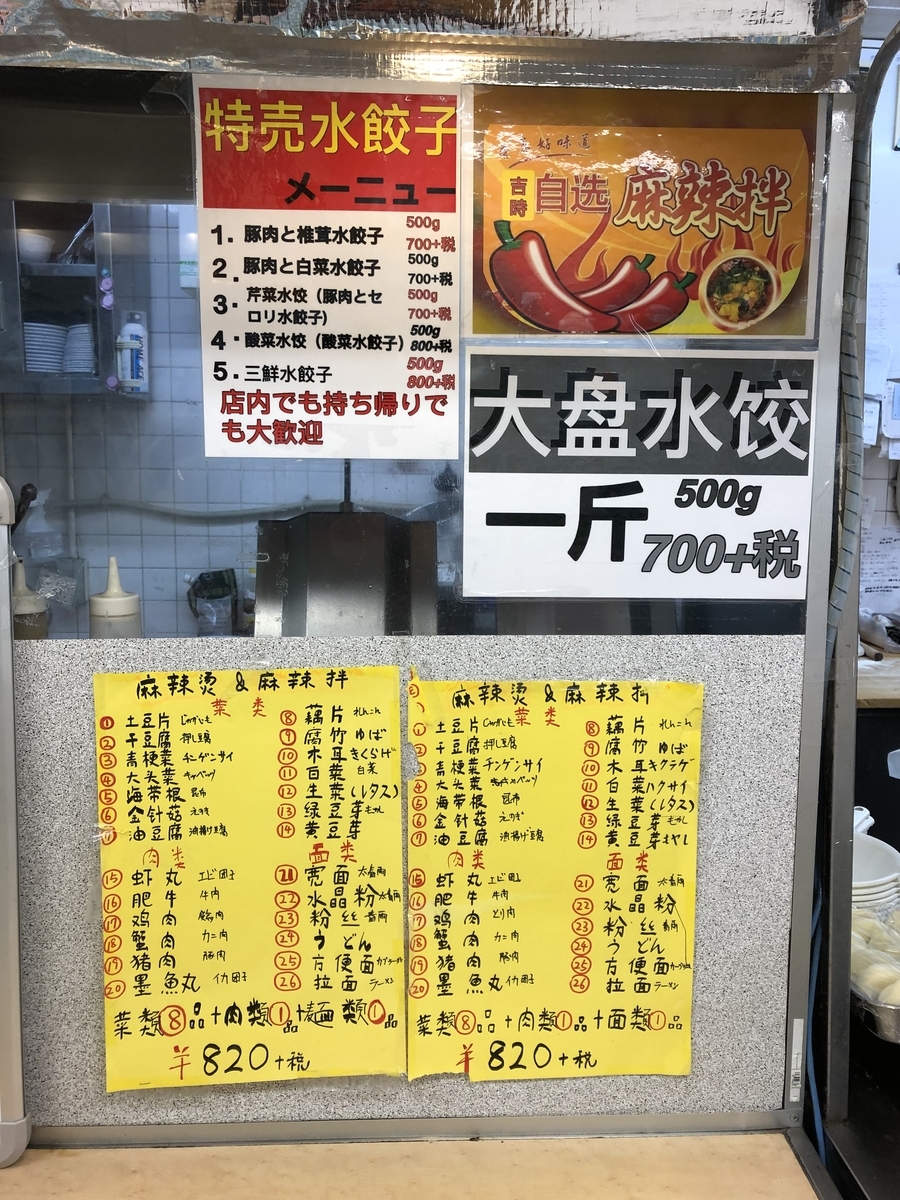 特売水餃子
メーニュー
1. 豚肉と椎茸水餃子 500g 700+税
2. 豚肉と白菜水餃子 500g 700+税
3. 芹菜水饺（豚肉とセ
ロリ水餃子) 500g 700+税
4. 酸菜水饺（酸菜水餃子） 500g 800+税
5. 三鮮水餃子 500g 800+税
店内でも持ち帰りで
も大歓迎
好味道
吉時 自选 麻辣拌
大盘水饺
一斤 500g
700+税
麻辣烫 & 麻辣拌
菜类
① 土豆片 じゃがいも
② 干豆腐 押し豆腐
③ 青梗菜 チンゲンサイ
④ 大头菜 キャベツ
⑤ 海带根 昆布
⑥ 金针菇 えのき
⑦ 油豆腐 油揚げ豆腐
⑧ 藕片 れんこん
⑨ 腐竹 ゆば
⑩ 木耳 きくらげ
⑪ 白菜 白菜
⑫ 生菜 (レタス)
⑬ 绿豆芽 もやし
⑭ 黄豆芽
肉类
⑮ 虾丸 エビ団子
⑯ 肥牛 牛肉
⑰ 鸡肉 鶏肉
⑱ 蟹肉 カニ肉
⑲ 猪肉 豚肉
⑳ 墨魚丸 イカ団子
面类
㉑ 宽面
㉒ 水晶粉
㉓ 粉丝 春雨
㉔ うどん
㉕ 方便面
㉖ 拉面 ラーメン
菜類⑧品+肉類①品+麺類①品
¥820+税
麻辣烫 & 麻辣拌
菜类
土豆片 じゃがいも
干豆腐 押し豆腐
青梗菜 チンゲンサイ
大头菜
海带根 昆布
金针菇 えのき
油豆腐 油揚げ豆腐
⑧ 藕片 れんこん
⑨ 腐竹 ゆば
⑩ 木耳 キクラゲ
⑪ 白菜 ハクサイ
⑫ 生菜 (レタス)
⑬ 绿豆芽 もやし
⑭ 黄豆芽 もやし
肉类
⑮ 虾丸 エビ団子
⑯ 肥牛 牛肉
⑰ 鸡肉 とり肉
⑱ 蟹肉 カニ肉
⑲ 猪肉 豚肉
⑳ 墨魚丸 イカ団子
面类
㉑ 宽面
㉒ 水晶粉
㉓ 粉丝 春雨
㉔ うどん
㉕ 方便面
㉖ 拉面 ラーメン
菜類⑧品+肉類①品+面類①品
¥820+税